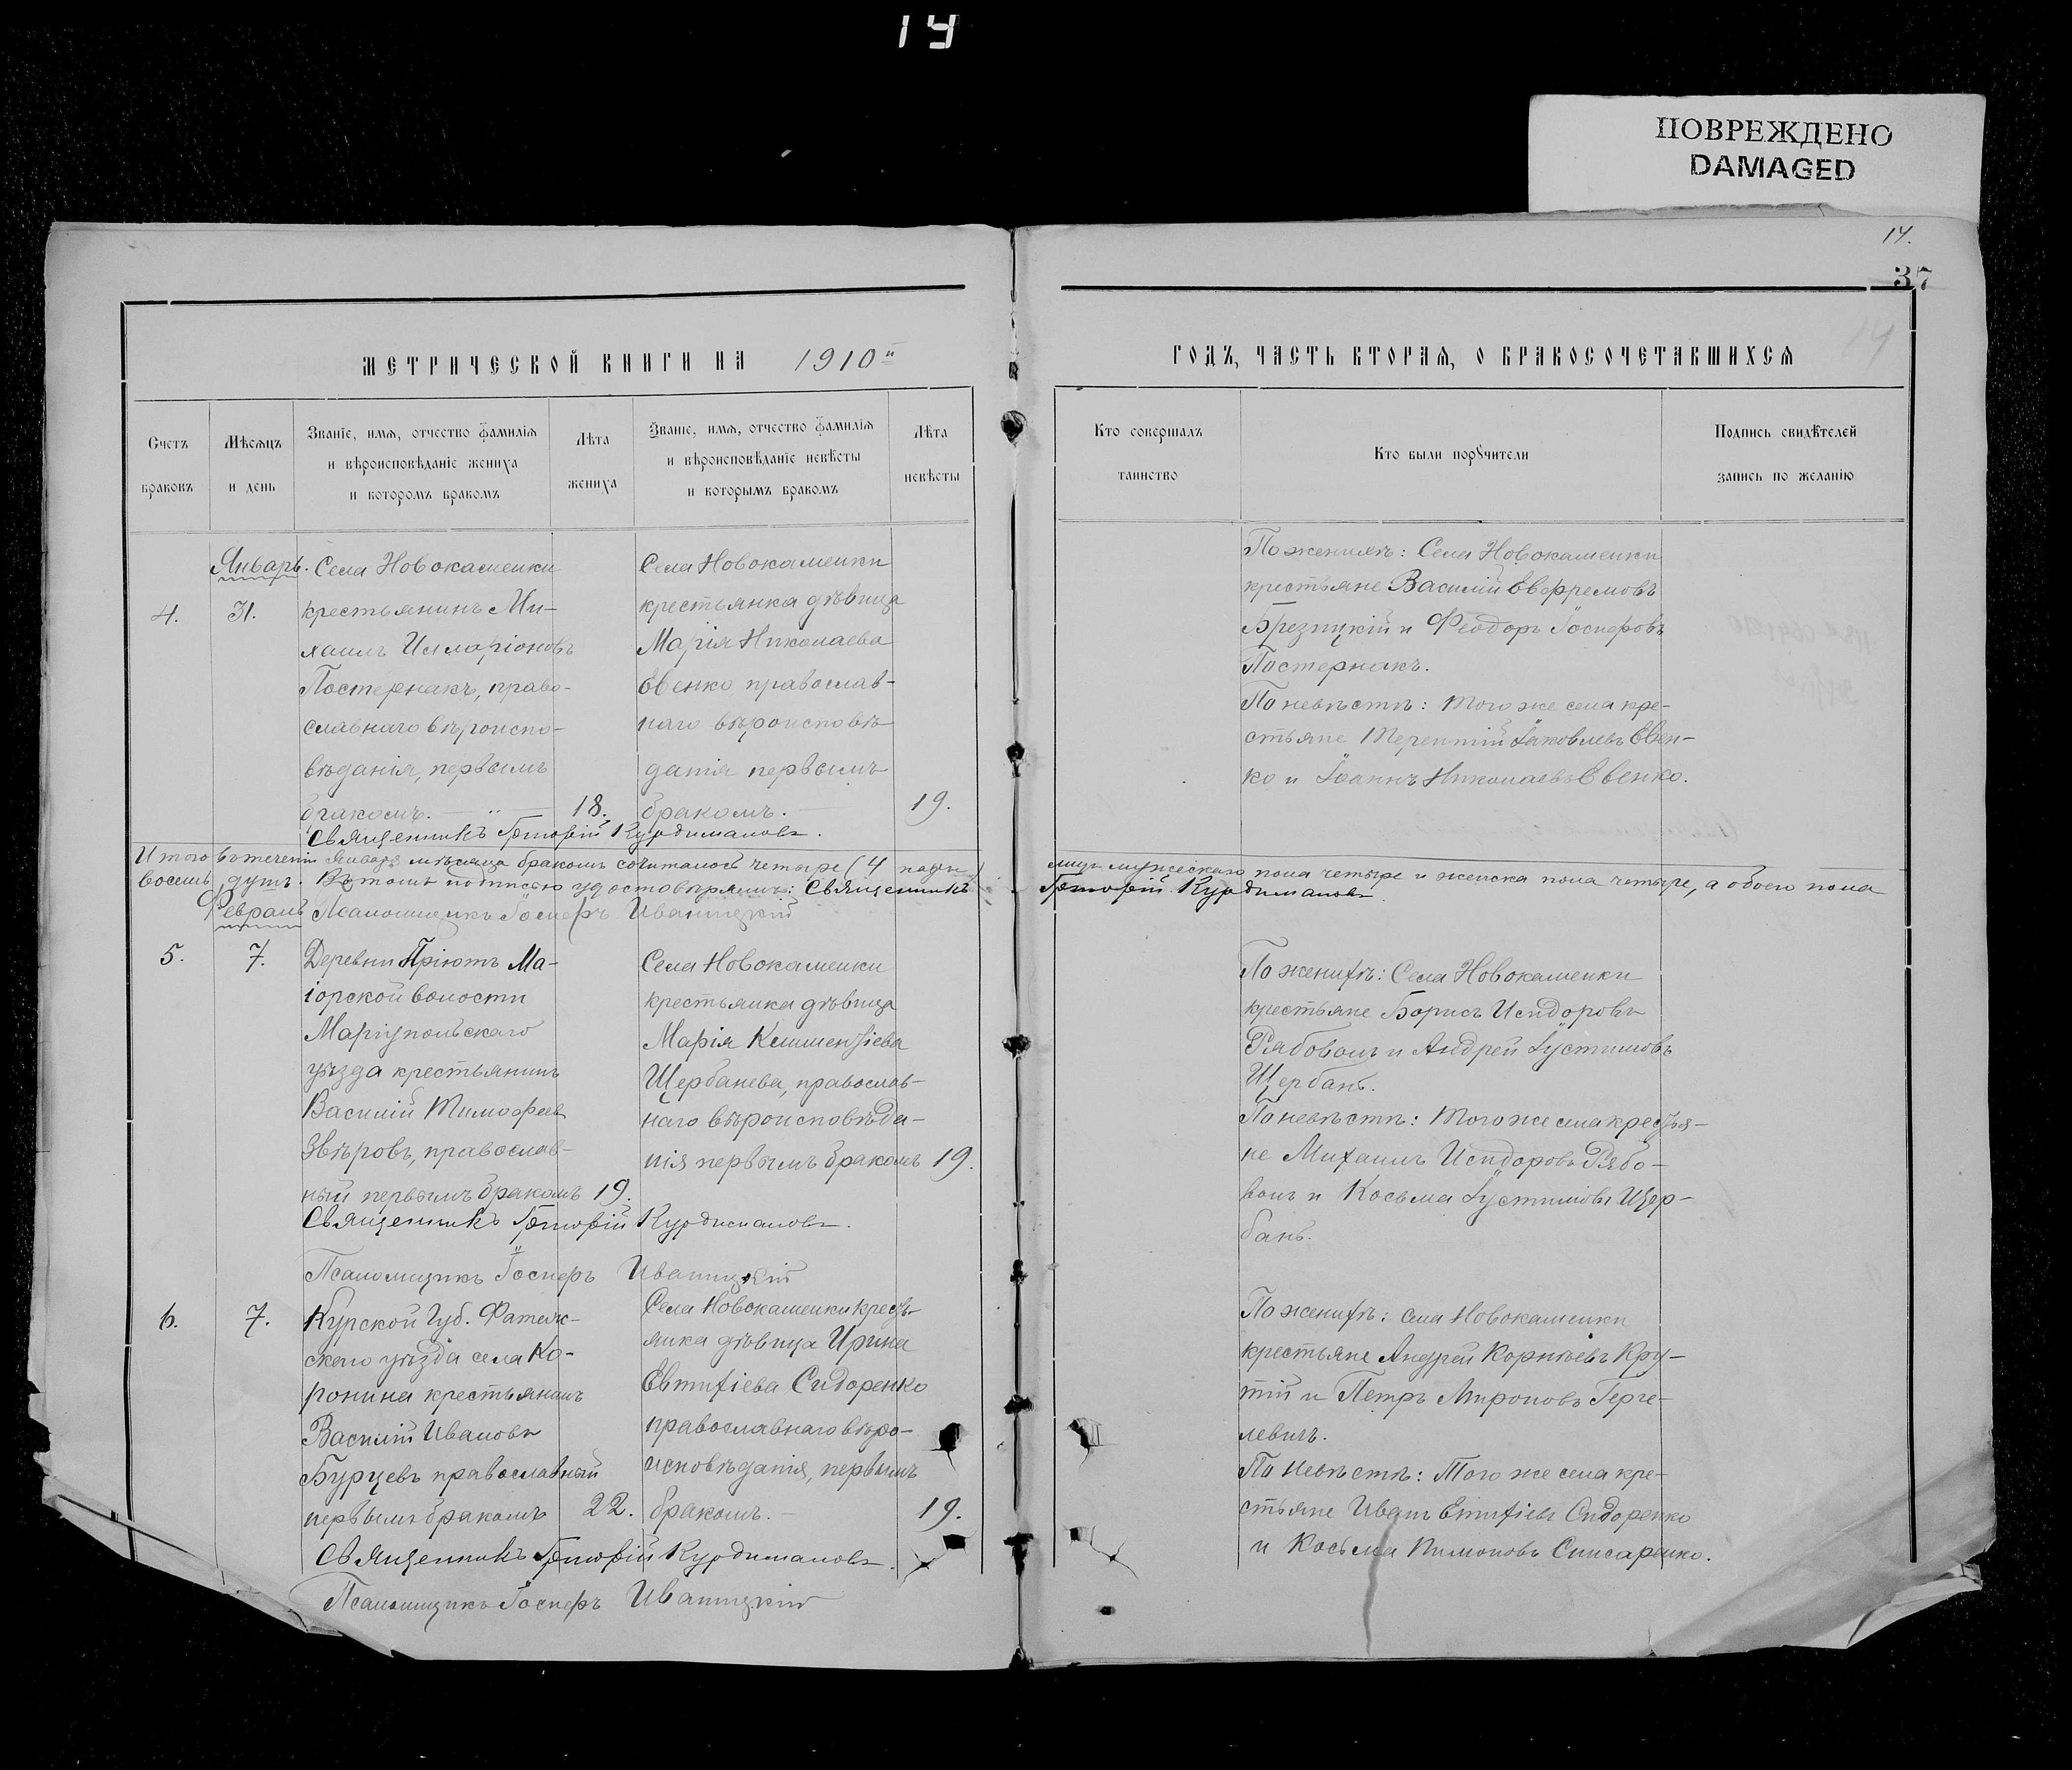 14
ПОВРЕЖДЕНО
DAMAGED
14.
37
14
МЕТРИЧЕСКОЙ КНИГИ НА 1910й
ГОДЪ, ЧАСТЬ ВТОРАЯ, О БРАКОСОЧЕТАВШИХСЯ
Счетъ
браковъ
Мѣсяцъ
и день
Званіе, имя, отчество фамилія
и вѣроисповѣданіе жениха
и которомъ бракомъ
Лѣта
жениха
Званіе, имя, отчество фамилія
и вѣроисповѣданіе невѣсты
и которымъ бракомъ
Лѣта
невѣсты
Кто совершалъ
таинство
Кто были поручители
Подпись свидѣтелей
запись по желанію
Январь.
4.
31.
Села Новокаменки
крестьянинъ Ми-
хаилъ Илларіоновъ
Постернакъ, право-
славнаго вѣроиспо-
вѣданія, первымъ
бракомъ.
18.
Села Новокаменки
крестьянка дѣвица
Марія Николаева
Евенко православ-
наго вѣроисповѣ-
данія первымъ
бракомъ.
19.
По женихѣ: Села Новокаменки
крестьяне Василій Евфремовъ
Брезицкій и Феодоръ Іосифовъ
Постернакъ.
По невѣстѣ: того же села кре-
стьяне Терентій Іаковлевъ Евен-
ко и Іоаннъ Николаевъ Евенко.
Священникъ Григорій Курдимановъ.
Итого въ теченіи Январѣ мѣсяца бракомъ сочиталось четыре (4 пары) лицъ мужескаго пола четыре и женска пола четыре, а обоего пола
восемь душъ. Въ томъ подписью удостовѣряемъ: Священникъ Григорій Курдимановъ.
Февраль
Псаломщикъ Іосифъ Иваницкій
5.
7.
Деревни Пріютъ Ма-
іорской волости
Маріупольскаго
уѣзда крестьянинъ
Василій Тимофеев
Звѣровъ, православ-
ный первымъ бракомъ
19.
Села Новокаменки
крестьянка дѣвица
Марія Климентіева
Щербанева, православ-
наго вѣроисповѣда-
нія первымъ бракомъ
19.
По женихѣ: Села Новокаменки
крестьяне Борисъ Исидоровъ
Рябоволъ и Андрей Іустиновъ
Щербань.
По невѣстѣ: того же села крестья-
не Михаилъ Исидоровъ Рябо-
волъ и Косьма Іустиновъ Щер-
бань.
Священникъ Григорій Курдимановъ.
Псаломщикъ Іосифъ Иваницкій
6.
7.
Курской Губ. Фатеж-
скаго уѣзда села Ко-
ронина крестьянинъ
Василій Ивановъ
Бурцевъ православный
первымъ бракомъ
22.
Села Новокаменки кресть-
янка дѣвица Ирина
Евтихіева Сидоренко
православнаго вѣро-
исповѣданія, первымъ
бракомъ.
19.
По женихѣ: села Новокаменки
крестьяне Андрей Корнѣевъ Кру-
тій и Петръ Мироновъ Герге-
левичъ.
По невѣстѣ: Того же села кре-
стьяне Иванъ Евтихіевъ Сидоренко
и Косьма Пимоновъ Слисаренко.
Священникъ Григорій Курдимановъ.
Псаломщикъ Іосифъ Иваницкій